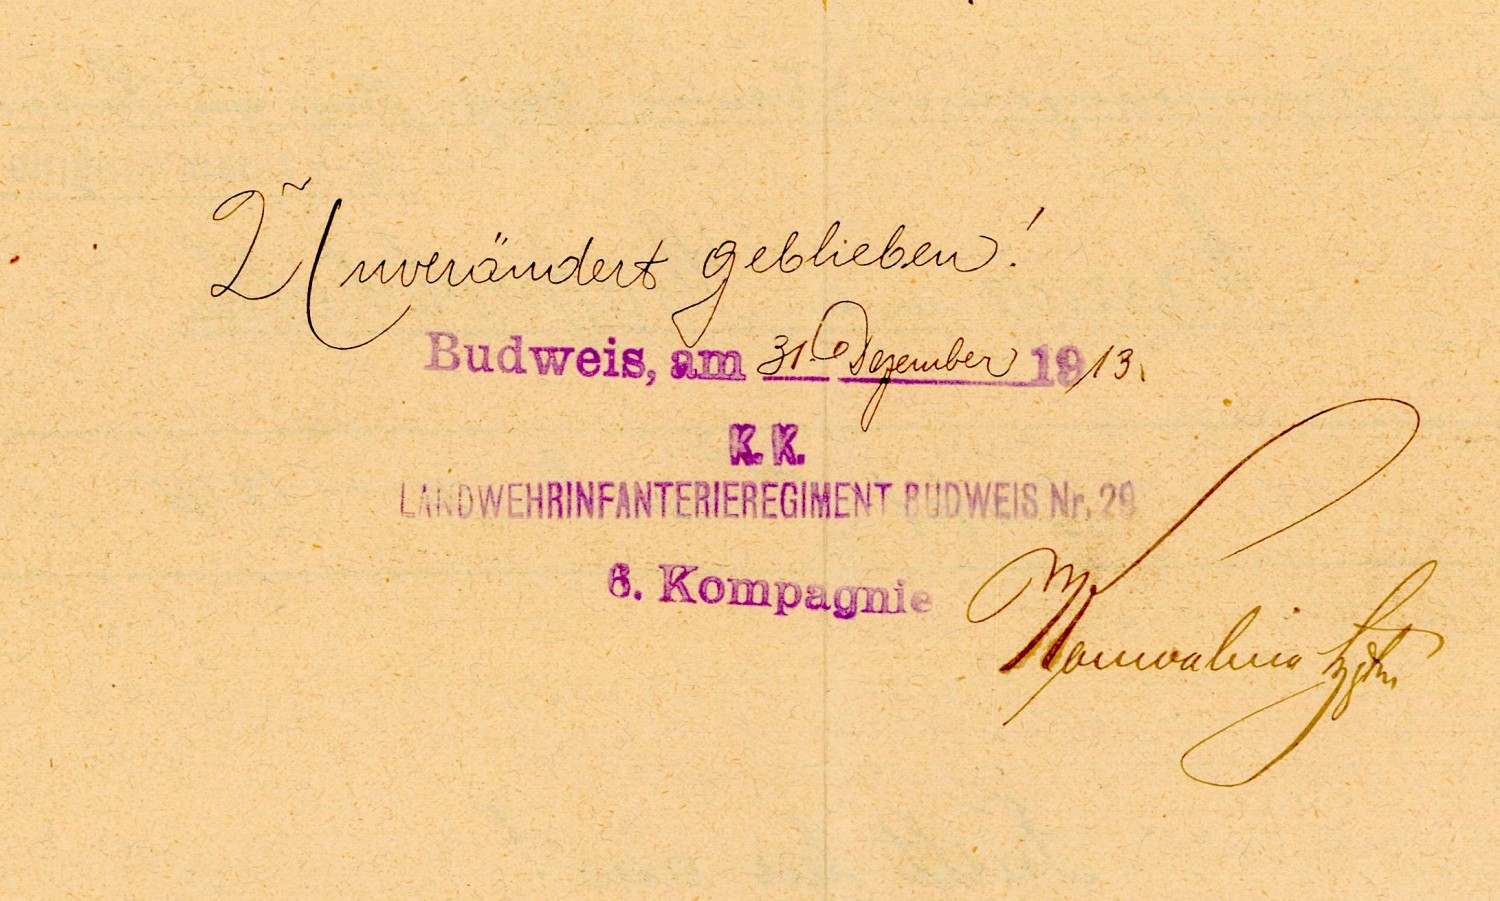 Unverändert geblieben!
Budweis, am 31. Dezember 1913.
K. K.
LANDWEHRINFANTERIEREGIMENT BUDWEIS Nr. 29
6. Kompagnie